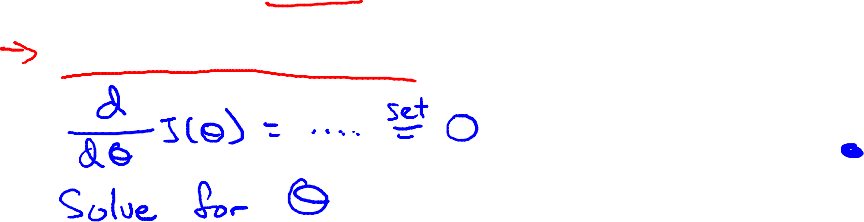 →
d/dθ J(θ) = ..... set = 0
Solve for θ